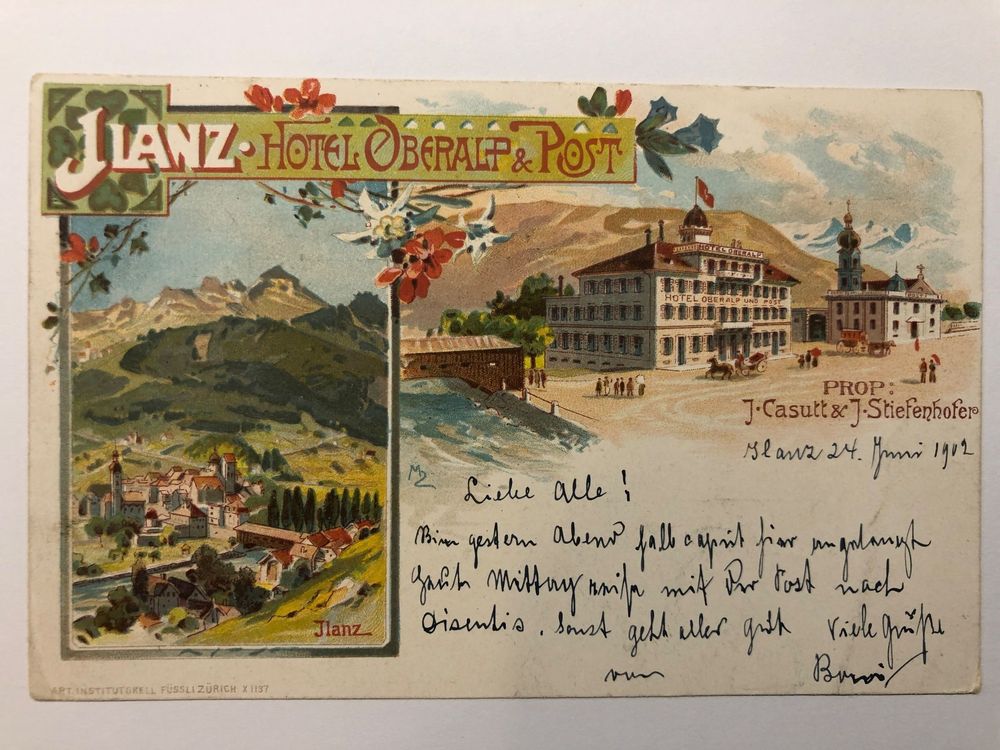 JLANZ · HOTEL OBERALP & POST
HOTEL OBERALP
HOTEL OBERALP UND POST
POST
PROP:
J. Casutt & J. Stiefenhofer
Ilanz 24. Juni 1902
MZ
Liebe Alle!
Bin gestern Abend halb caput hier angelangt
Heute Mittag reise mit der Post nach
Disentis. Sonst geht alles gut Viele Grüße
von
Jlanz
ART. INSTITUT ORELL FÜSSLI ZÜRICH X 1137